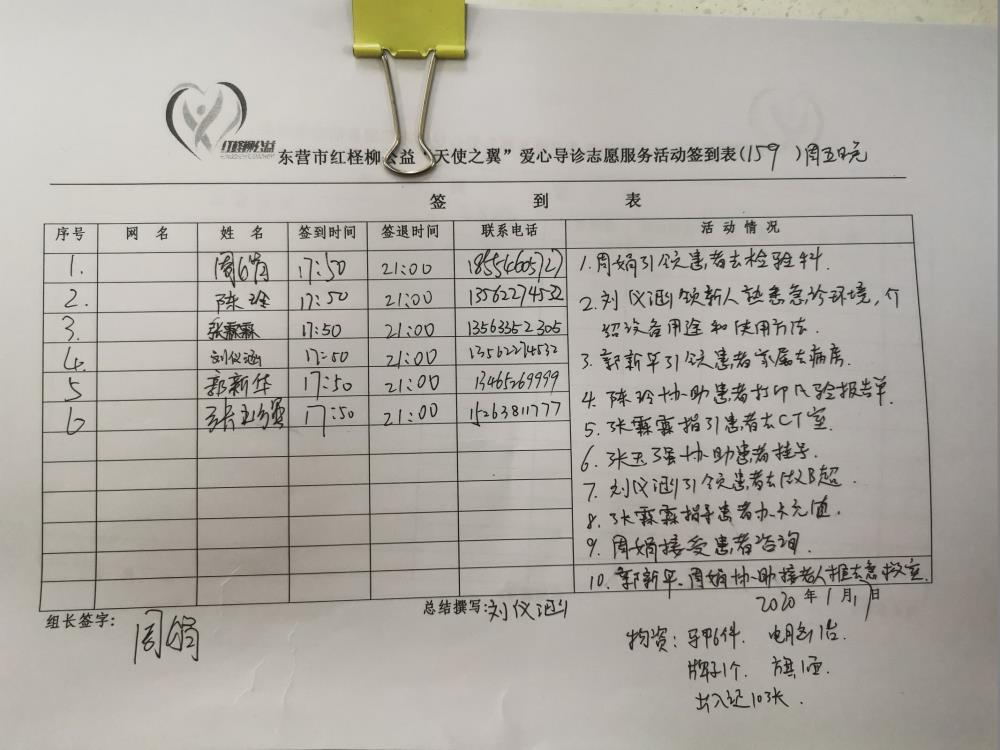 红柽柳公益
东营市红柽柳公益“天使之翼”爱心导诊志愿服务活动签到表(159)周五晚
签 到 表
序号 网 名 姓 名 签到时间 签退时间 联系电话 活 动 情 况
1. 周娟 17:50 21:00 18554605727
2. 陈玲 17:50 21:00 13562274532
3. 张霖霖 17:50 21:00 13563352305
4. 刘仪涵 17:50 21:00 13562274532
5 郭新华 17:50 21:00 13465269999
6 张玉强 17:50 21:00 15263811777
1.周娟引领患者去检验科.
2.刘仪涵领新人熟悉急诊环境,介
绍设备用途和使用方法.
3.郭新华引领患者家属去病房.
4.陈玲协助患者打印化验报告单.
5.张霖霖指引患者去CT室.
6.张玉强协助患者挂号.
7.刘仪涵引领患者去做B超.
8.张霖霖指导患者办卡充值.
9.周娟接受患者咨询.
10.郭新华.周娟协助接老人推去急救室.
2020年1月17日
组长签字: 周娟
总结撰写:刘仪涵
物资:马甲6件.
牌子1个. 旗1面.
出入记10张.